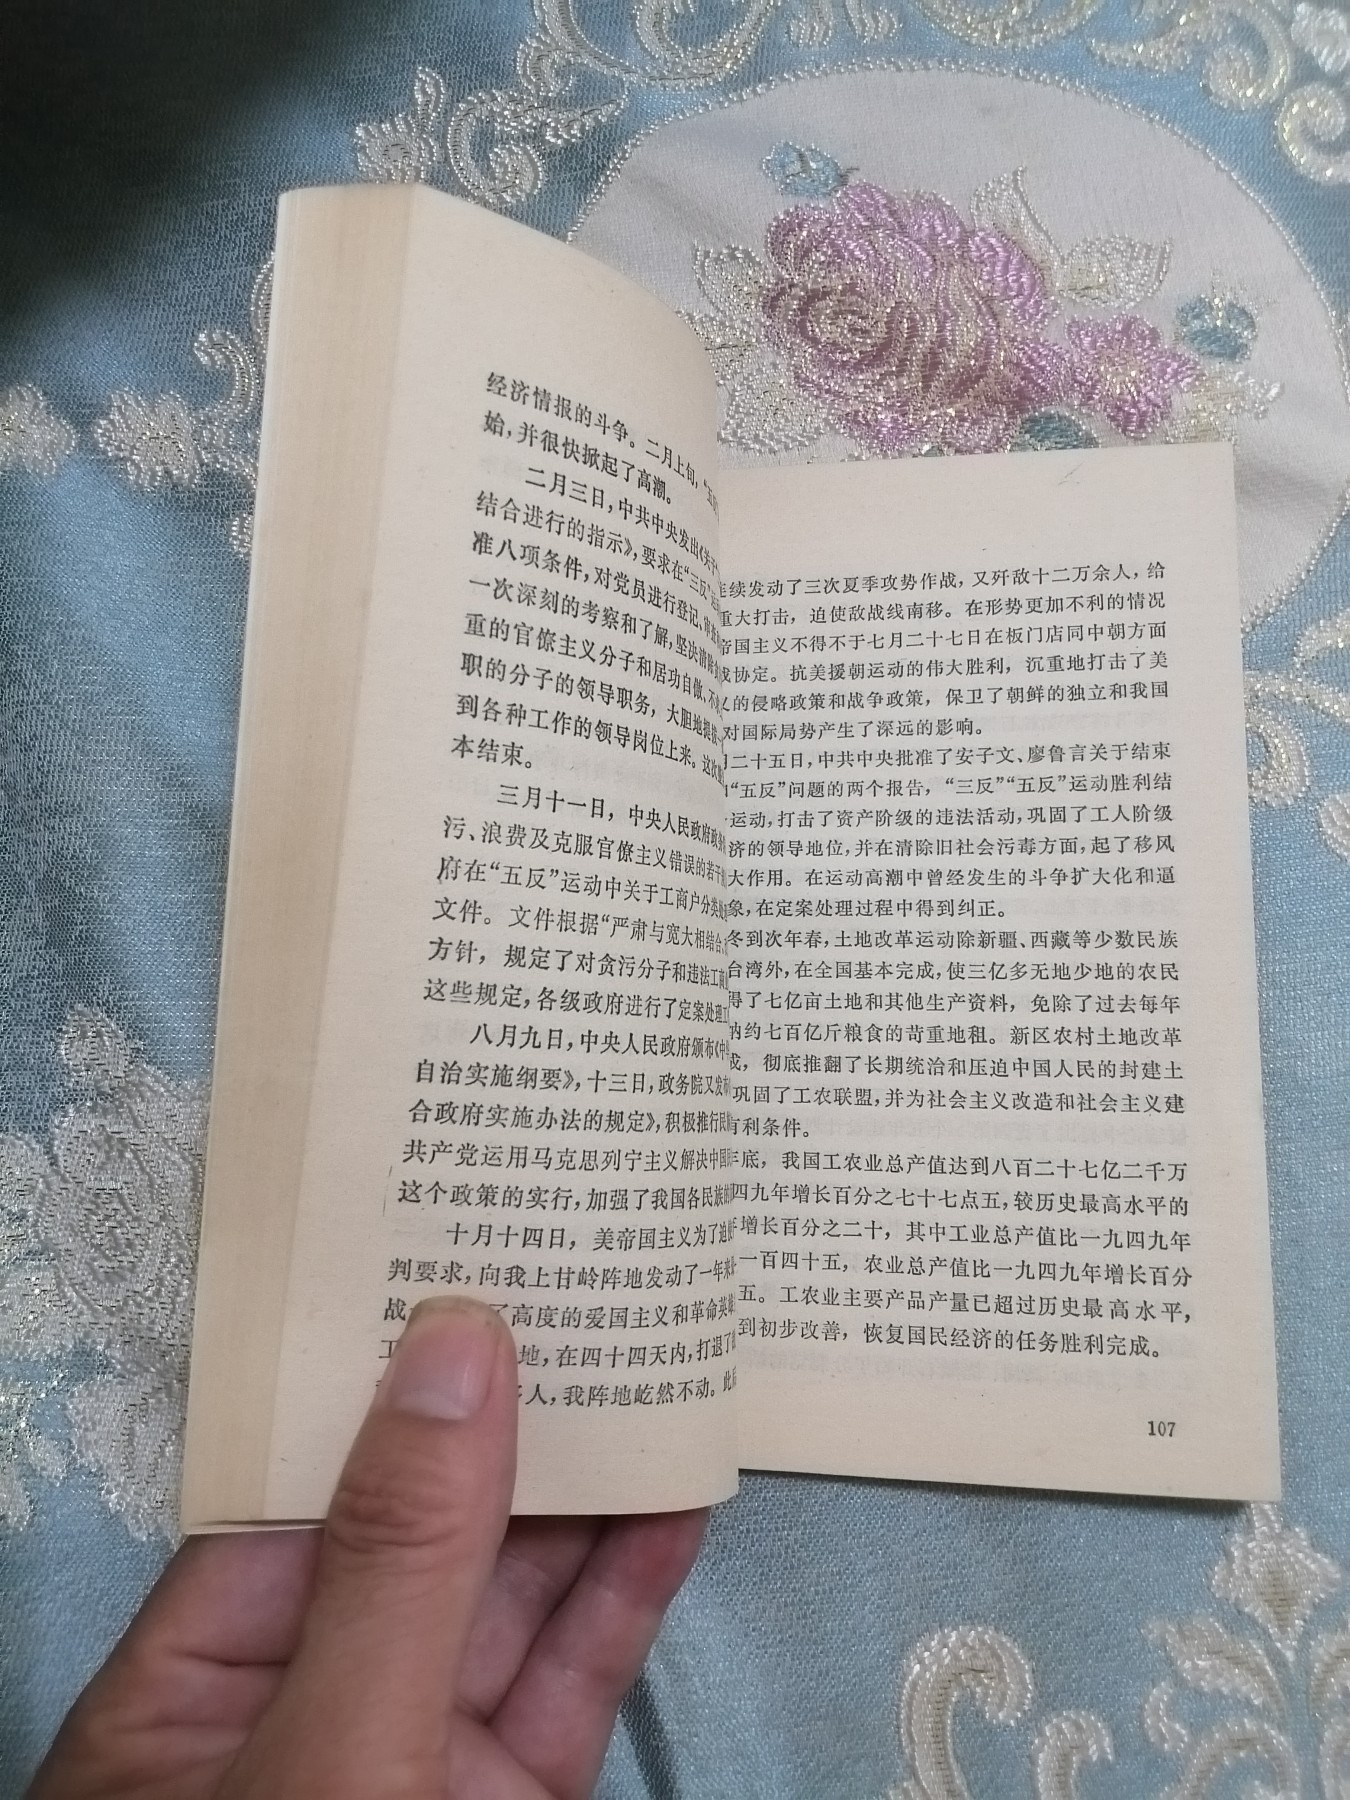 经济情报的斗争。二月上旬，“五
始，并很快掀起了高潮。
二月三日，中共中央发出《关于
结合进行的指示》，要求在“三反”运
准八项条件，对党员进行登记、审
一次深刻的考察和了解，坚决清除
重的官僚主义分子和居功自傲、不
职的分子的领导职务，大胆地提拔
到各种工作的领导岗位上来。这次
本结束。
三月十一日，中央人民政府政务
污、浪费及克服官僚主义错误的若干
府在“五反”运动中关于工商户分类处
文件。文件根据“严肃与宽大相结合，
方针，规定了对贪污分子和违法工商
这些规定，各级政府进行了定案处理工
八月九日，中央人民政府颁布《中
自治实施纲要》，十三日，政务院又发布
合政府实施办法的规定》，积极推行民
共产党运用马克思列宁主义解决中国
这个政策的实行，加强了我国各民族的
十月十四日，美帝国主义为了迫使
判要求，向我上甘岭阵地发动了一年来
战 了高度的爱国主义和革命英雄
工 地，在四十四天内，打退了
人，我阵地屹然不动。此后
连续发动了三次夏季攻势作战，又歼敌十二万余人，给
重大打击，迫使敌战线南移。在形势更加不利的情况
帝国主义不得不于七月二十七日在板门店同中朝方面
战协定。抗美援朝运动的伟大胜利，沉重地打击了美
义的侵略政策和战争政策，保卫了朝鲜的独立和我国
对国际局势产生了深远的影响。
月二十五日，中共中央批准了安子文、廖鲁言关于结束
“五反”问题的两个报告，“三反”“五反”运动胜利结
运动，打击了资产阶级的违法活动，巩固了工人阶级
济的领导地位，并在清除旧社会污毒方面，起了移风
大作用。在运动高潮中曾经发生的斗争扩大化和逼
象，在定案处理过程中得到纠正。
冬到次年春，土地改革运动除新疆、西藏等少数民族
台湾外，在全国基本完成，使三亿多无地少地的农民
得了七亿亩土地和其他生产资料，免除了过去每年
纳约七百亿斤粮食的苛重地租。新区农村土地改革
成，彻底推翻了长期统治和压迫中国人民的封建土
巩固了工农联盟，并为社会主义改造和社会主义建
有利条件。
年底，我国工农业总产值达到八百二十七亿二千万
四九年增长百分之七十七点五，较历史最高水平的
年增长百分之二十，其中工业总产值比一九四九年
一百四十五，农业总产值比一九四九年增长百分
五。工农业主要产品产量已超过历史最高水平，
到初步改善，恢复国民经济的任务胜利完成。
107